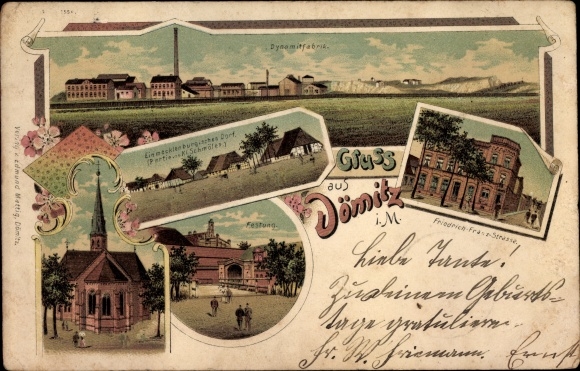 Dynamitfabrik.
Ein mecklenburgisches Dorf.
(Partie aus Kl. Schmölen.)
Gruss
aus
Dömitz
i. M.
Friedrich-Franz-Strasse.
Festung.
Verlag v. Edmund Mettig, Dömitz.
Liebe Tante!
Zu deinem Geburts-
tage gratulieren
Fr. W.
Ernst